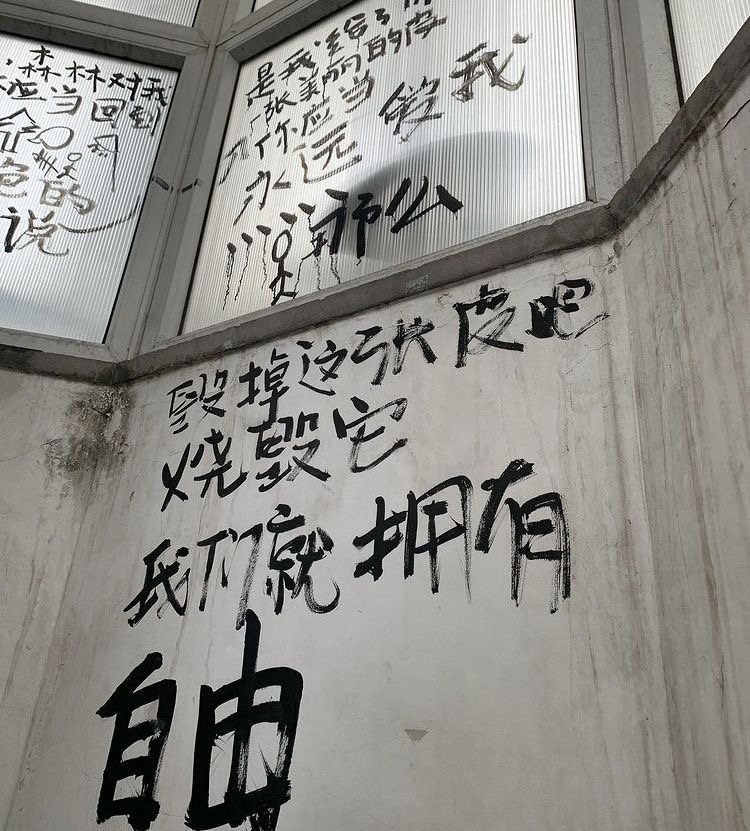 森林对我
应当回到
色的
说
是我送给了
张美丽的皮
你应当
永远
做我
那么
毁掉这张皮吧
烧毁它
我们就拥有
自由